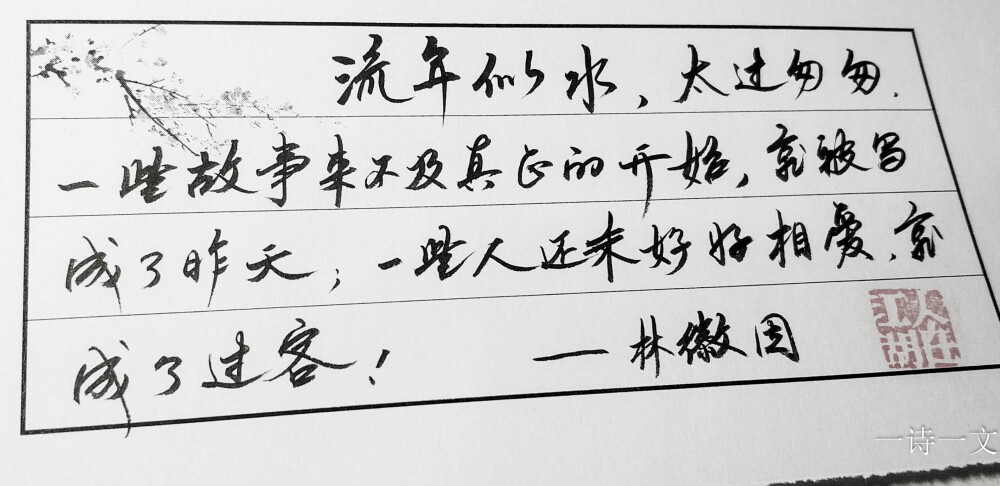 流年似水，太过匆匆.
一些故事来不及真正的开始，就被写
成了昨天；一些人还未好好相爱，就
成了过客！ ——林徽因
人在江湖
一诗一文